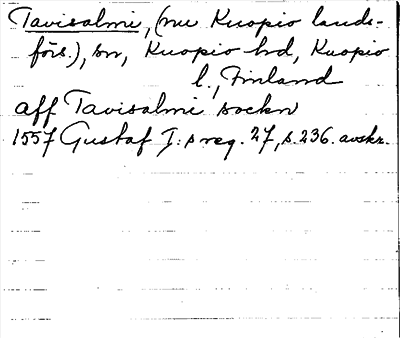 Tavisalmi, (nu Kuopio lands-
förs.), sn, Kuopio hd, Kuopio
l., Finland
aff Tavisalmi sockn
1557 Gustaf I:s reg. 27, s. 236. avskr.